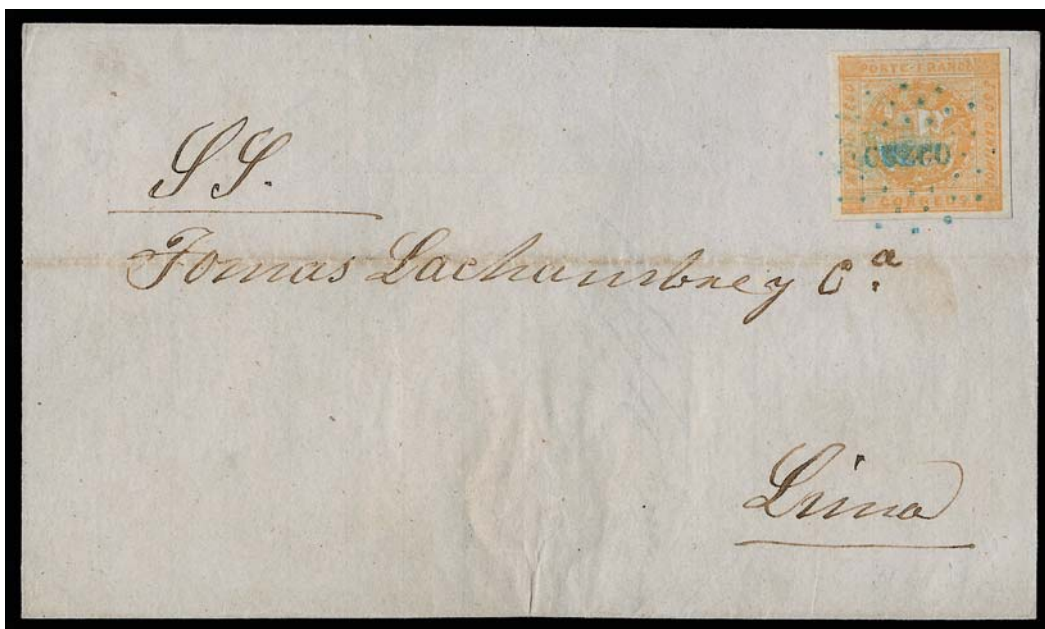 PORTE FRANCO
CUZCO
CORREOS
S S.
Tomas Lachambre y C.ª
Lima